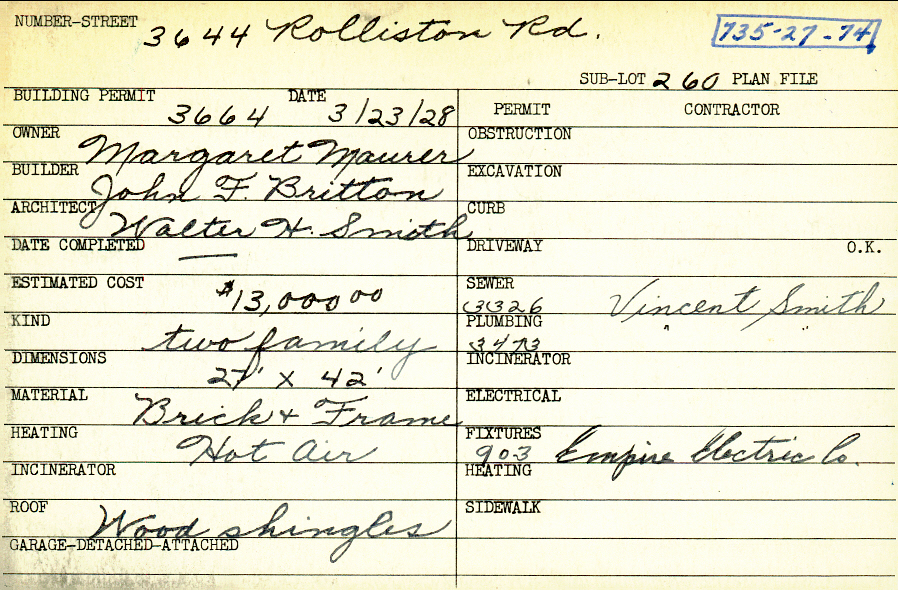 NUMBER-STREET 3644 Rolliston Rd. 735-27-74
SUB-LOT 260 PLAN FILE
BUILDING PERMIT 3664 DATE 3/23/28
PERMIT CONTRACTOR
OWNER Margaret Maurer
OBSTRUCTION
BUILDER John F. Britton
EXCAVATION
ARCHITECT Walter H. Smith
CURB
DATE COMPLETED —
DRIVEWAY O.K.
ESTIMATED COST $13,000 00
SEWER 3326 Vincent Smith
KIND two family
PLUMBING 3473 "
DIMENSIONS 27' X 42'
INCINERATOR
MATERIAL Brick + Frame
ELECTRICAL
HEATING Hot Air
FIXTURES 903 Empire Electric Co.
INCINERATOR
HEATING
ROOF Wood shingles
SIDEWALK
GARAGE-DETACHED-ATTACHED